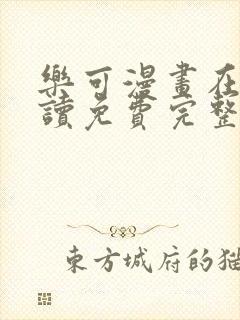 樂可漫畫在
讀免費完整
東方城府的猫